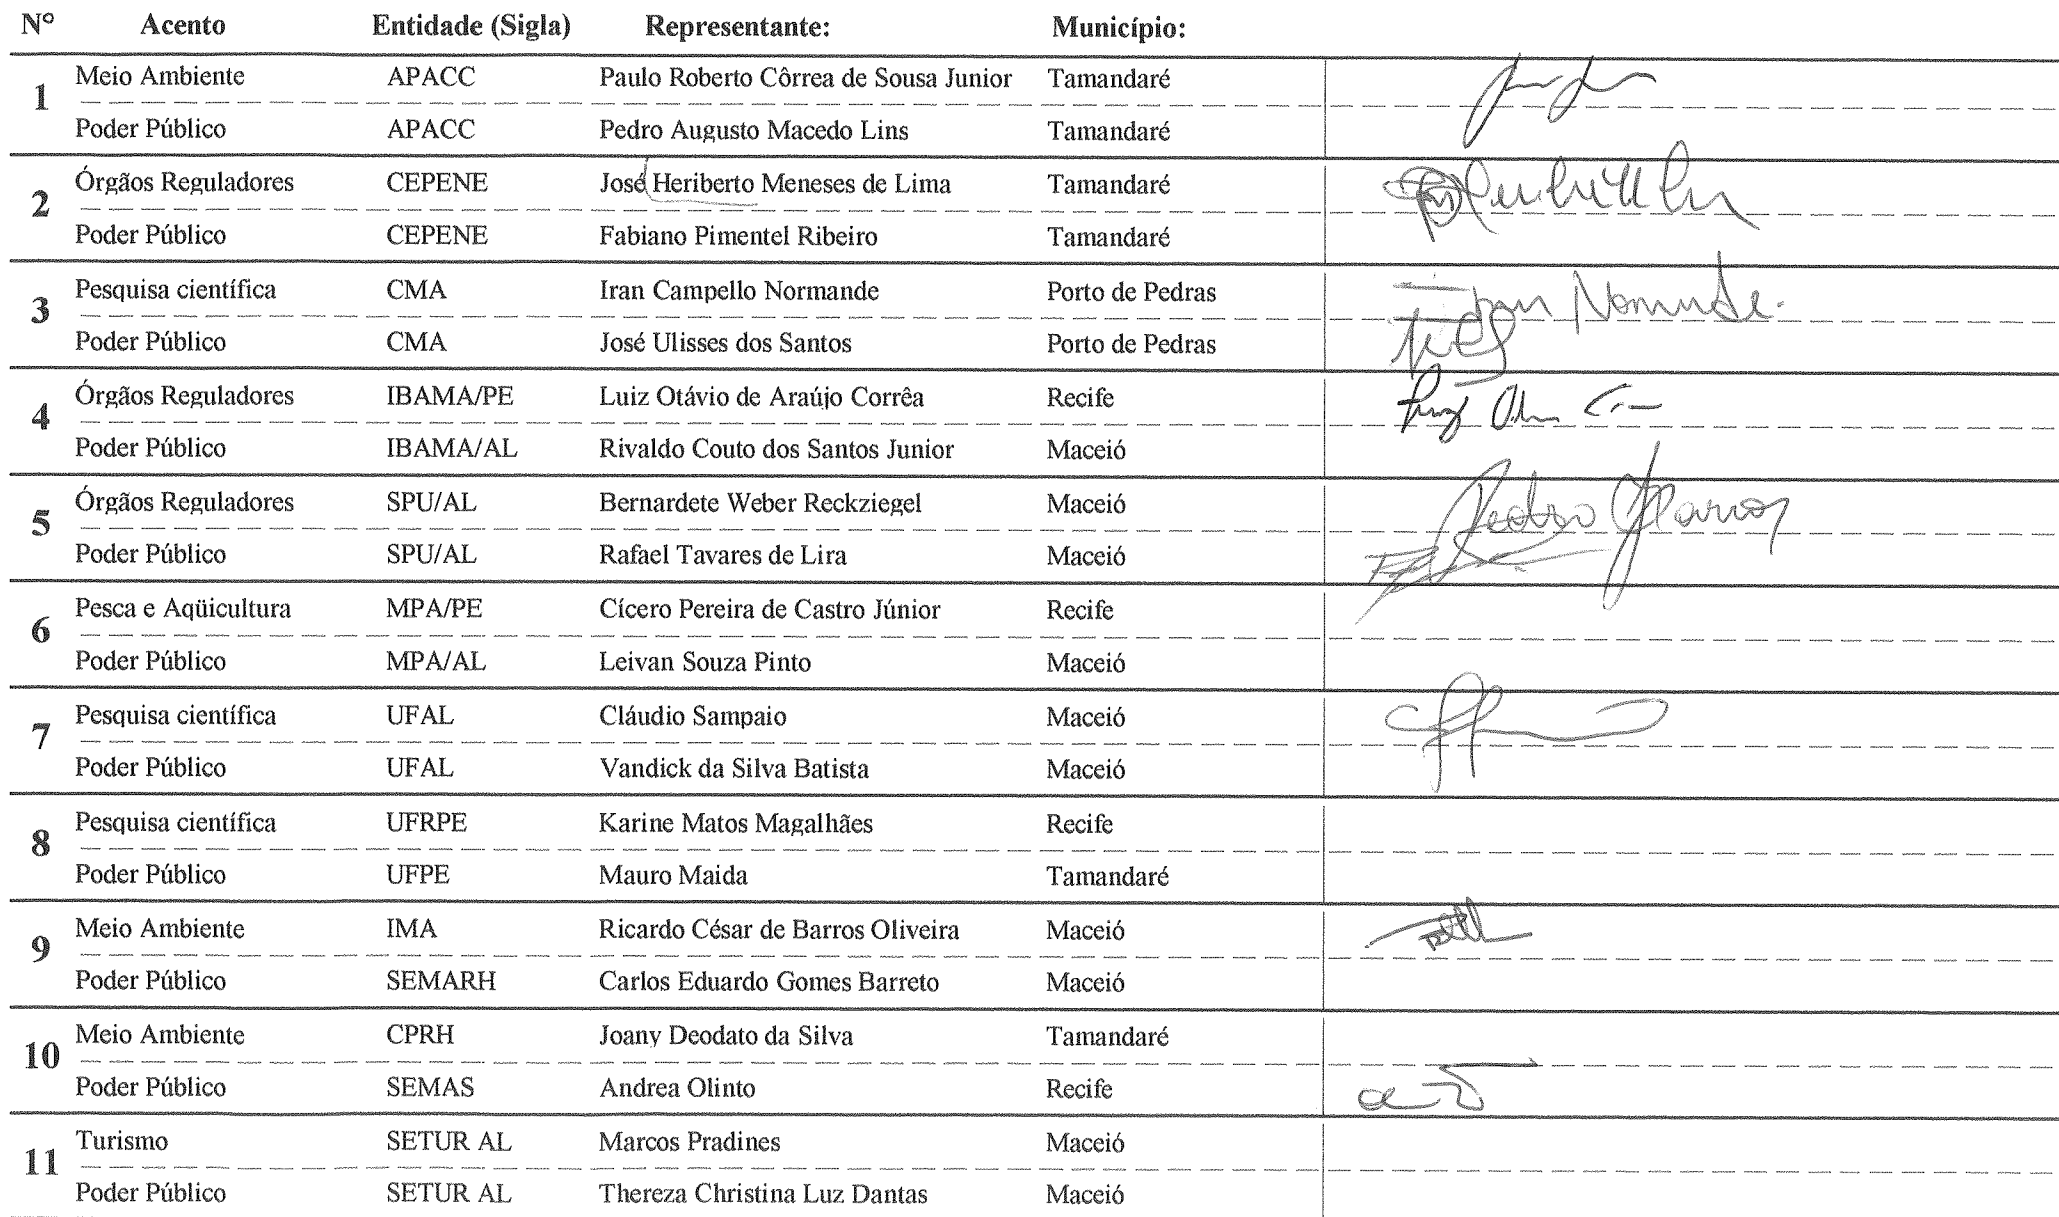 Nº Acento Entidade (Sigla) Representante: Município:
1
Meio Ambiente APACC Paulo Roberto Côrrea de Sousa Junior Tamandaré
Poder Público APACC Pedro Augusto Macedo Lins Tamandaré
2
Órgãos Reguladores CEPENE José Heriberto Meneses de Lima Tamandaré
Poder Público CEPENE Fabiano Pimentel Ribeiro Tamandaré
3
Pesquisa científica CMA Iran Campello Normande Porto de Pedras Iran Normande.
Poder Público CMA José Ulisses dos Santos Porto de Pedras
4
Órgãos Reguladores IBAMA/PE Luiz Otávio de Araújo Corrêa Recife
Poder Público IBAMA/AL Rivaldo Couto dos Santos Junior Maceió
5
Órgãos Reguladores SPU/AL Bernardete Weber Reckziegel Maceió Pedro
Poder Público SPU/AL Rafael Tavares de Lira Maceió
6
Pesca e Aqüicultura MPA/PE Cícero Pereira de Castro Júnior Recife
Poder Público MPA/AL Leivan Souza Pinto Maceió
7
Pesquisa científica UFAL Cláudio Sampaio Maceió
Poder Público UFAL Vandick da Silva Batista Maceió
8
Pesquisa científica UFRPE Karine Matos Magalhães Recife
Poder Público UFPE Mauro Maida Tamandaré
9
Meio Ambiente IMA Ricardo César de Barros Oliveira Maceió
Poder Público SEMARH Carlos Eduardo Gomes Barreto Maceió
10
Meio Ambiente CPRH Joany Deodato da Silva Tamandaré
Poder Público SEMAS Andrea Olinto Recife
11
Turismo SETUR AL Marcos Pradines Maceió
Poder Público SETUR AL Thereza Christina Luz Dantas Maceió